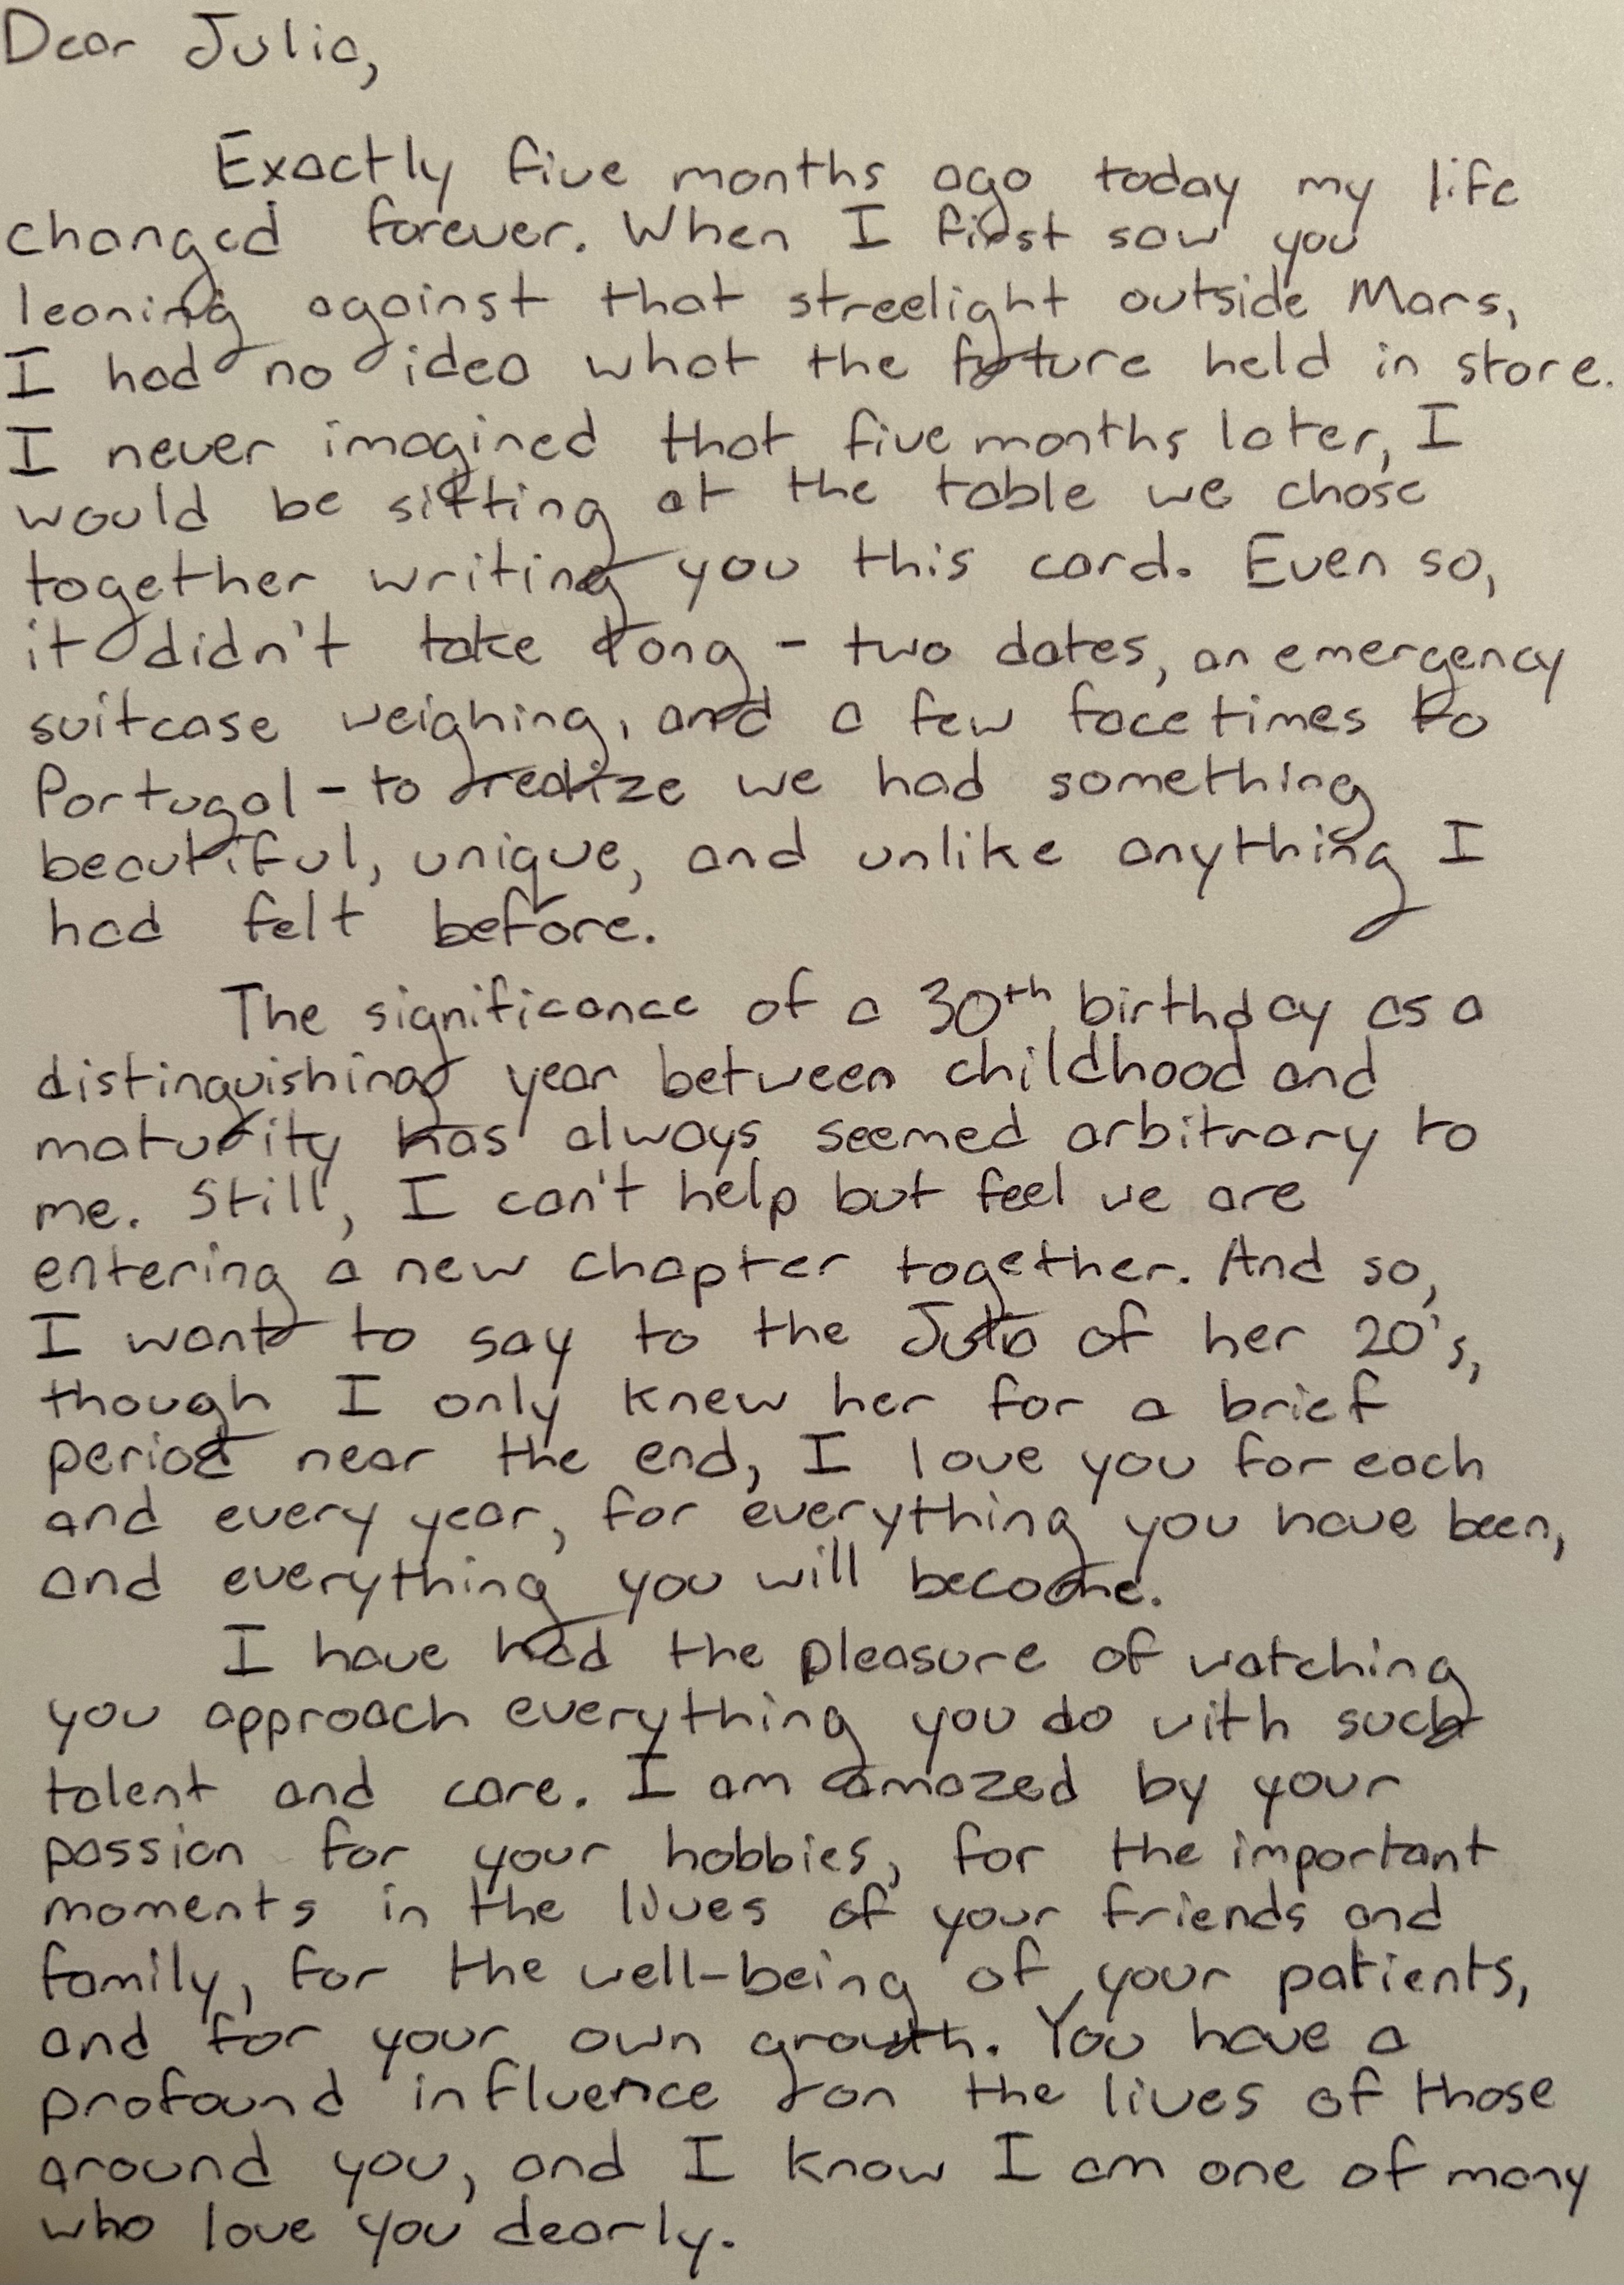 Dear Julia,
Exactly five months ago today my life
changed forever. When I first saw you
leaning against that streelight outside Mars,
I had no idea what the future held in store.
I never imagined that five months later, I
would be sitting at the table we chose
together writing you this card. Even so,
it didn't take long - two dates, an emergency
suitcase weighing, and a few facetimes to
Portugal - to realize we had something
beautiful, unique, and unlike anything I
had felt before.
The significance of a 30th birthday as a
distinguishing year between childhood and
maturity has always seemed arbitrary to
me. Still, I can't help but feel we are
entering a new chapter together. And so,
I want to say to the Julia of her 20's,
though I only knew her for a brief
period near the end, I love you for each
and every year, for everything you have been,
and everything you will become.
I have had the pleasure of watching
you approach everything you do with such
talent and care. I am amazed by your
passion for your hobbies, for the important
moments in the lives of your friends and
family, for the well-being of your patients,
and for your own growth. You have a
profound influence on the lives of those
around you, and I know I am one of many
who love you dearly.